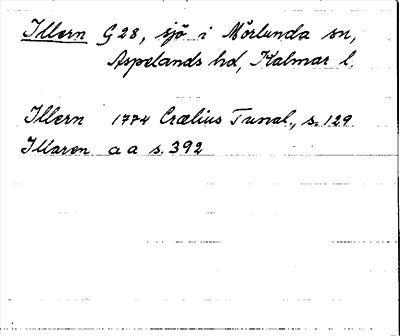 Illern G 28, sjö i Mörlunda sn,
Aspelands hd, Kalmar l.
Illern 1774 Crælius Tunal., s. 129
Illaren a a s. 392